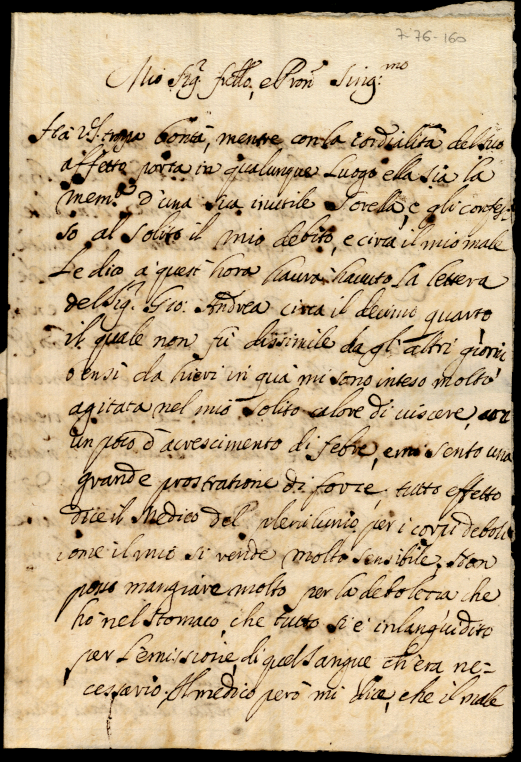 7-76-160
Mio Sig.r frello, e Pron Sing:mo
Ha V.S. troppa bontà, mentre con la cordialità del suo
affetto porta in qualunque Luogo ella sia la
mem.a d'una sua inutile Sorella, e gli confes-
so al solito il mio debito, e circa il mio male
Le dico a quest'hora havrà havuto la lettera
del Sig.r Gio: Andrea circa il decimo quarto
il quale non fù dissimile da gl'altri giorni
ensì da hieri in quà mi sono inteso molto
agitata nel mio solito calore di viscere, con
un poco d'accrescimento di febre, e mi sento una
grande prostratione di forze, tutto effetto
dice il Medico del plenilunio, per i corpi deboli
ome il mio si rende molto sensibile, Non
posso mangiare molto per la debolezza che
hò nel stomaco, che tutto si è inlanguidito
per L'emissione di quel sangue ch'era ne-
cessario. Il medico però mi dice, che il male